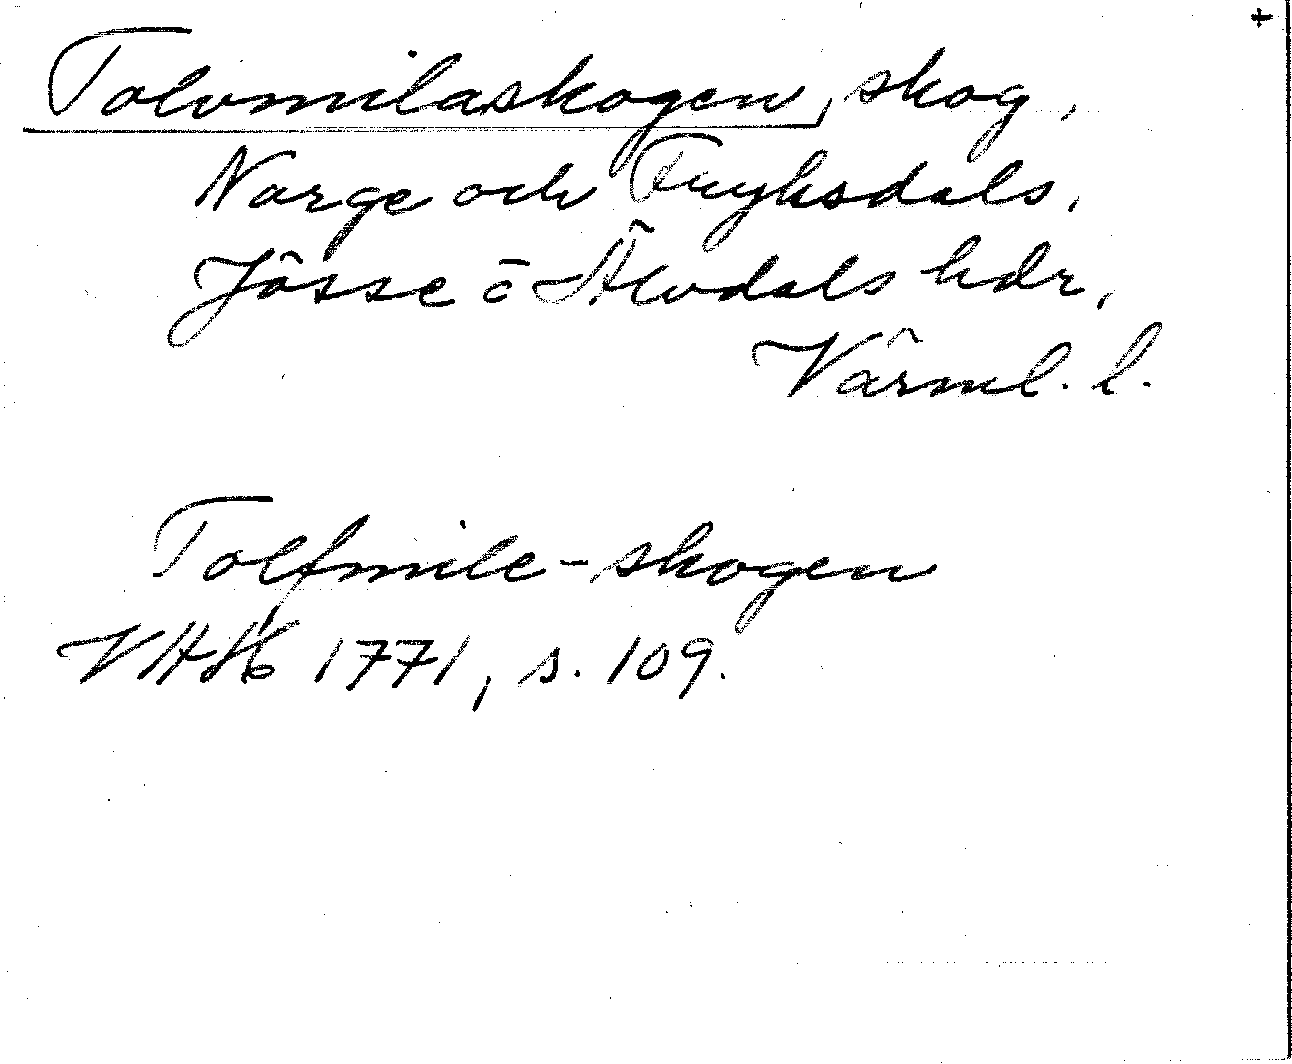 +
Tolvmilaskogen, skog,
Norge och Fryksdals,
Jösse o Älvdals hdr,
Värml. l.
Tolfmile-skogen
VHH 1771, s. 109.